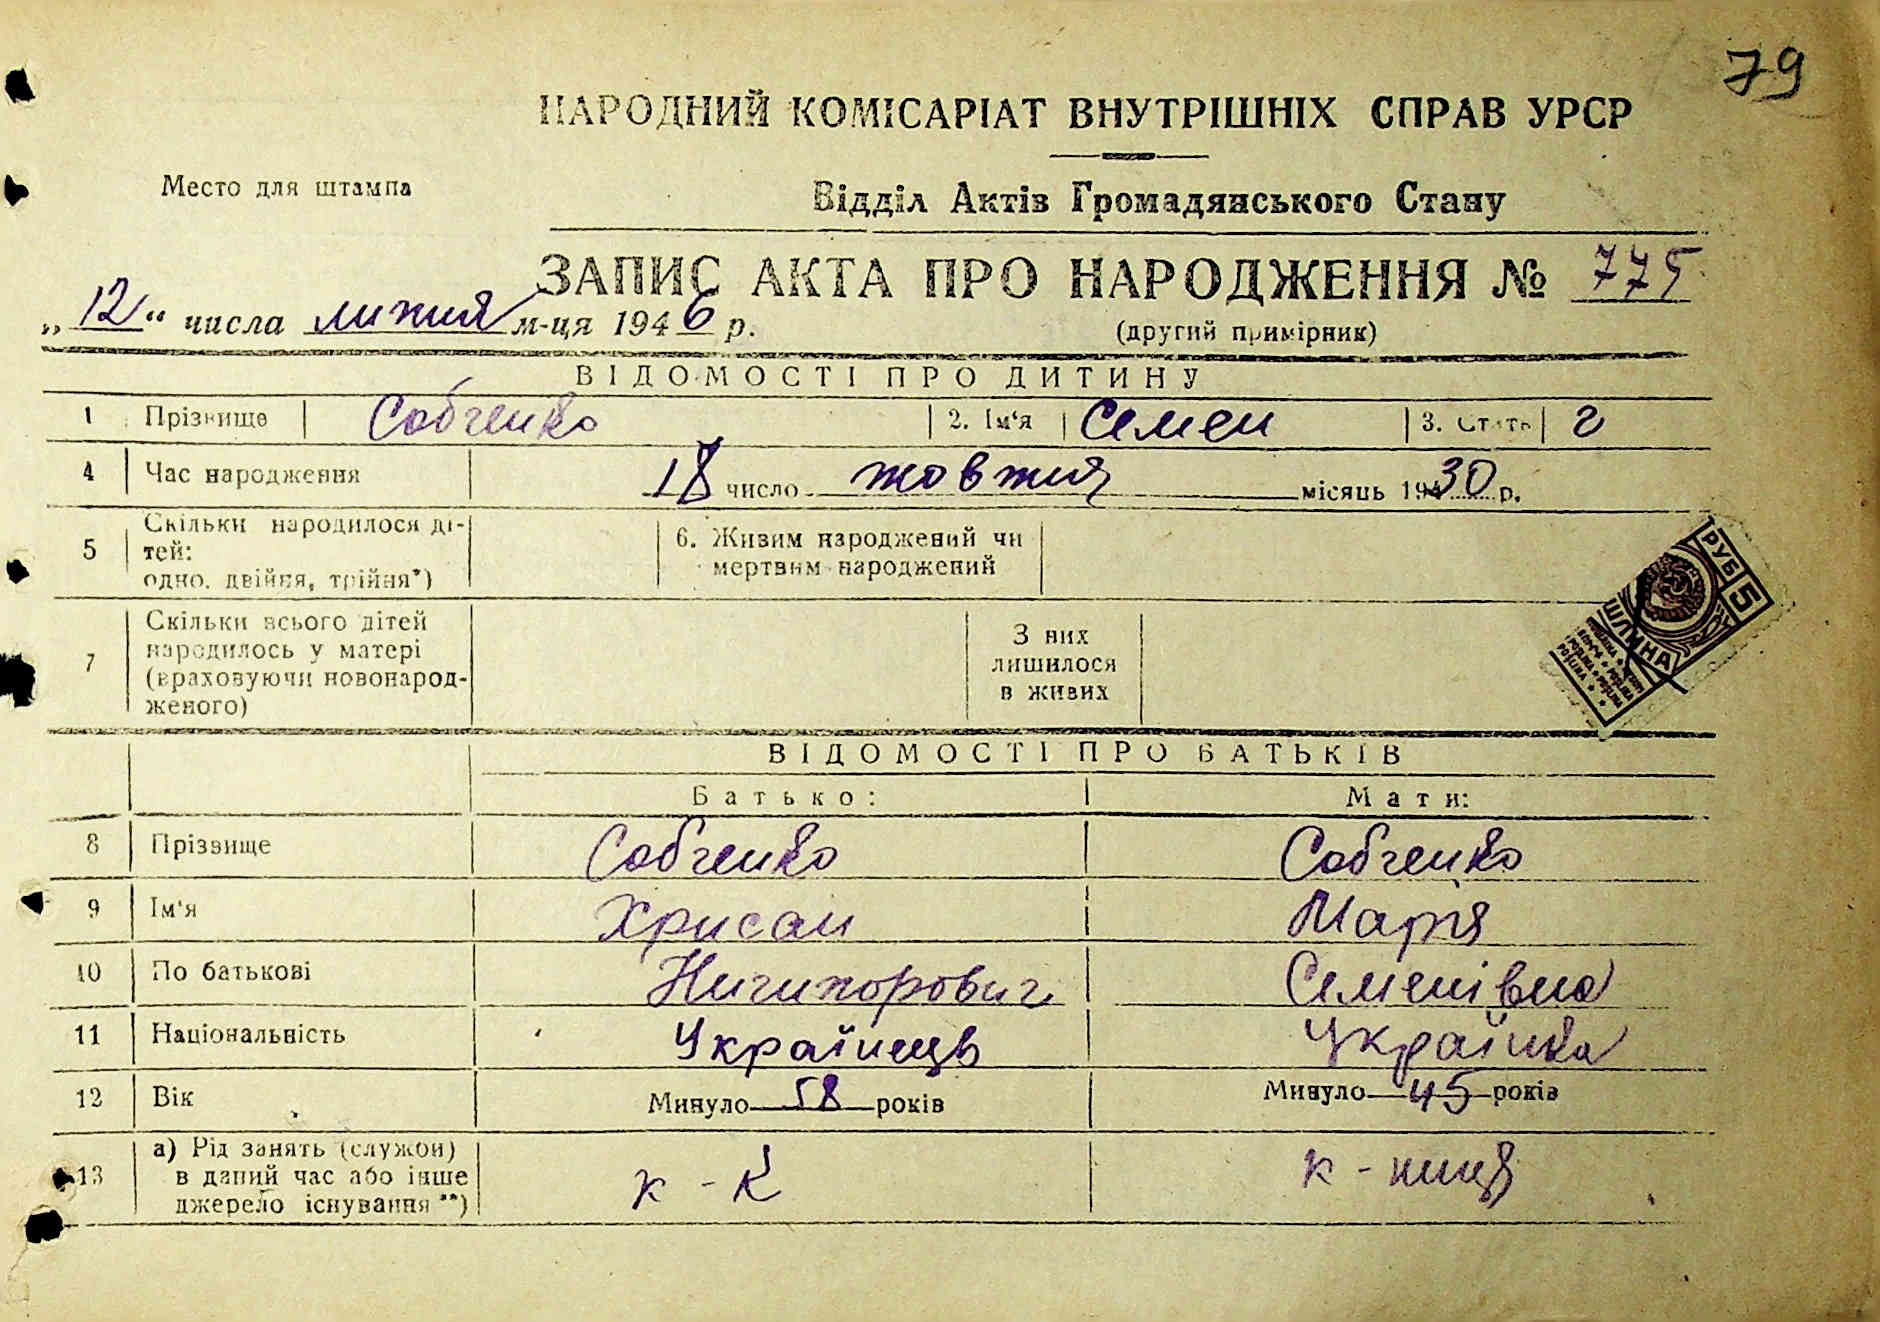 79
НАРОДНИЙ КОМІСАРІАТ ВНУТРІШНІХ СПРАВ УРСР
Место для штампа
Відділ Актів Громадянського Стану
ЗАПИС АКТА ПРО НАРОДЖЕННЯ № 775
„12“ числа липня м-ця 1946 р.
(другий примірник)
ВІДОМОСТІ ПРО ДИТИНУ
1 Прізвище Собченко 2. Ім'я Семен 3. Стать г
4 Час народження 18 число жовтня місяць 1930 р.
5 Скільки народилося ді-
тей:
одно, двійня, трійня*)
6. Живим народжений чи
мертвим народжений
7 Скільки всього дітей
народилось у матері
(враховуючи новонарод-
женого)
З них
лишилося
в живих
РУБ 5
ШЛИНА
ВІДОМОСТІ ПРО БАТЬКІВ
Батько: Мати:
8 Прізвище Собченко Собченко
9 Ім'я Хрисан Марія
10 По батькові Ничипорович Семенівна
11 Національність Українець Українка
12 Вік Минуло 58 років Минуло 45 років
13 а) Рід занять (служби)
в даний час або інше
джерело існування **)
к - к к - ниця